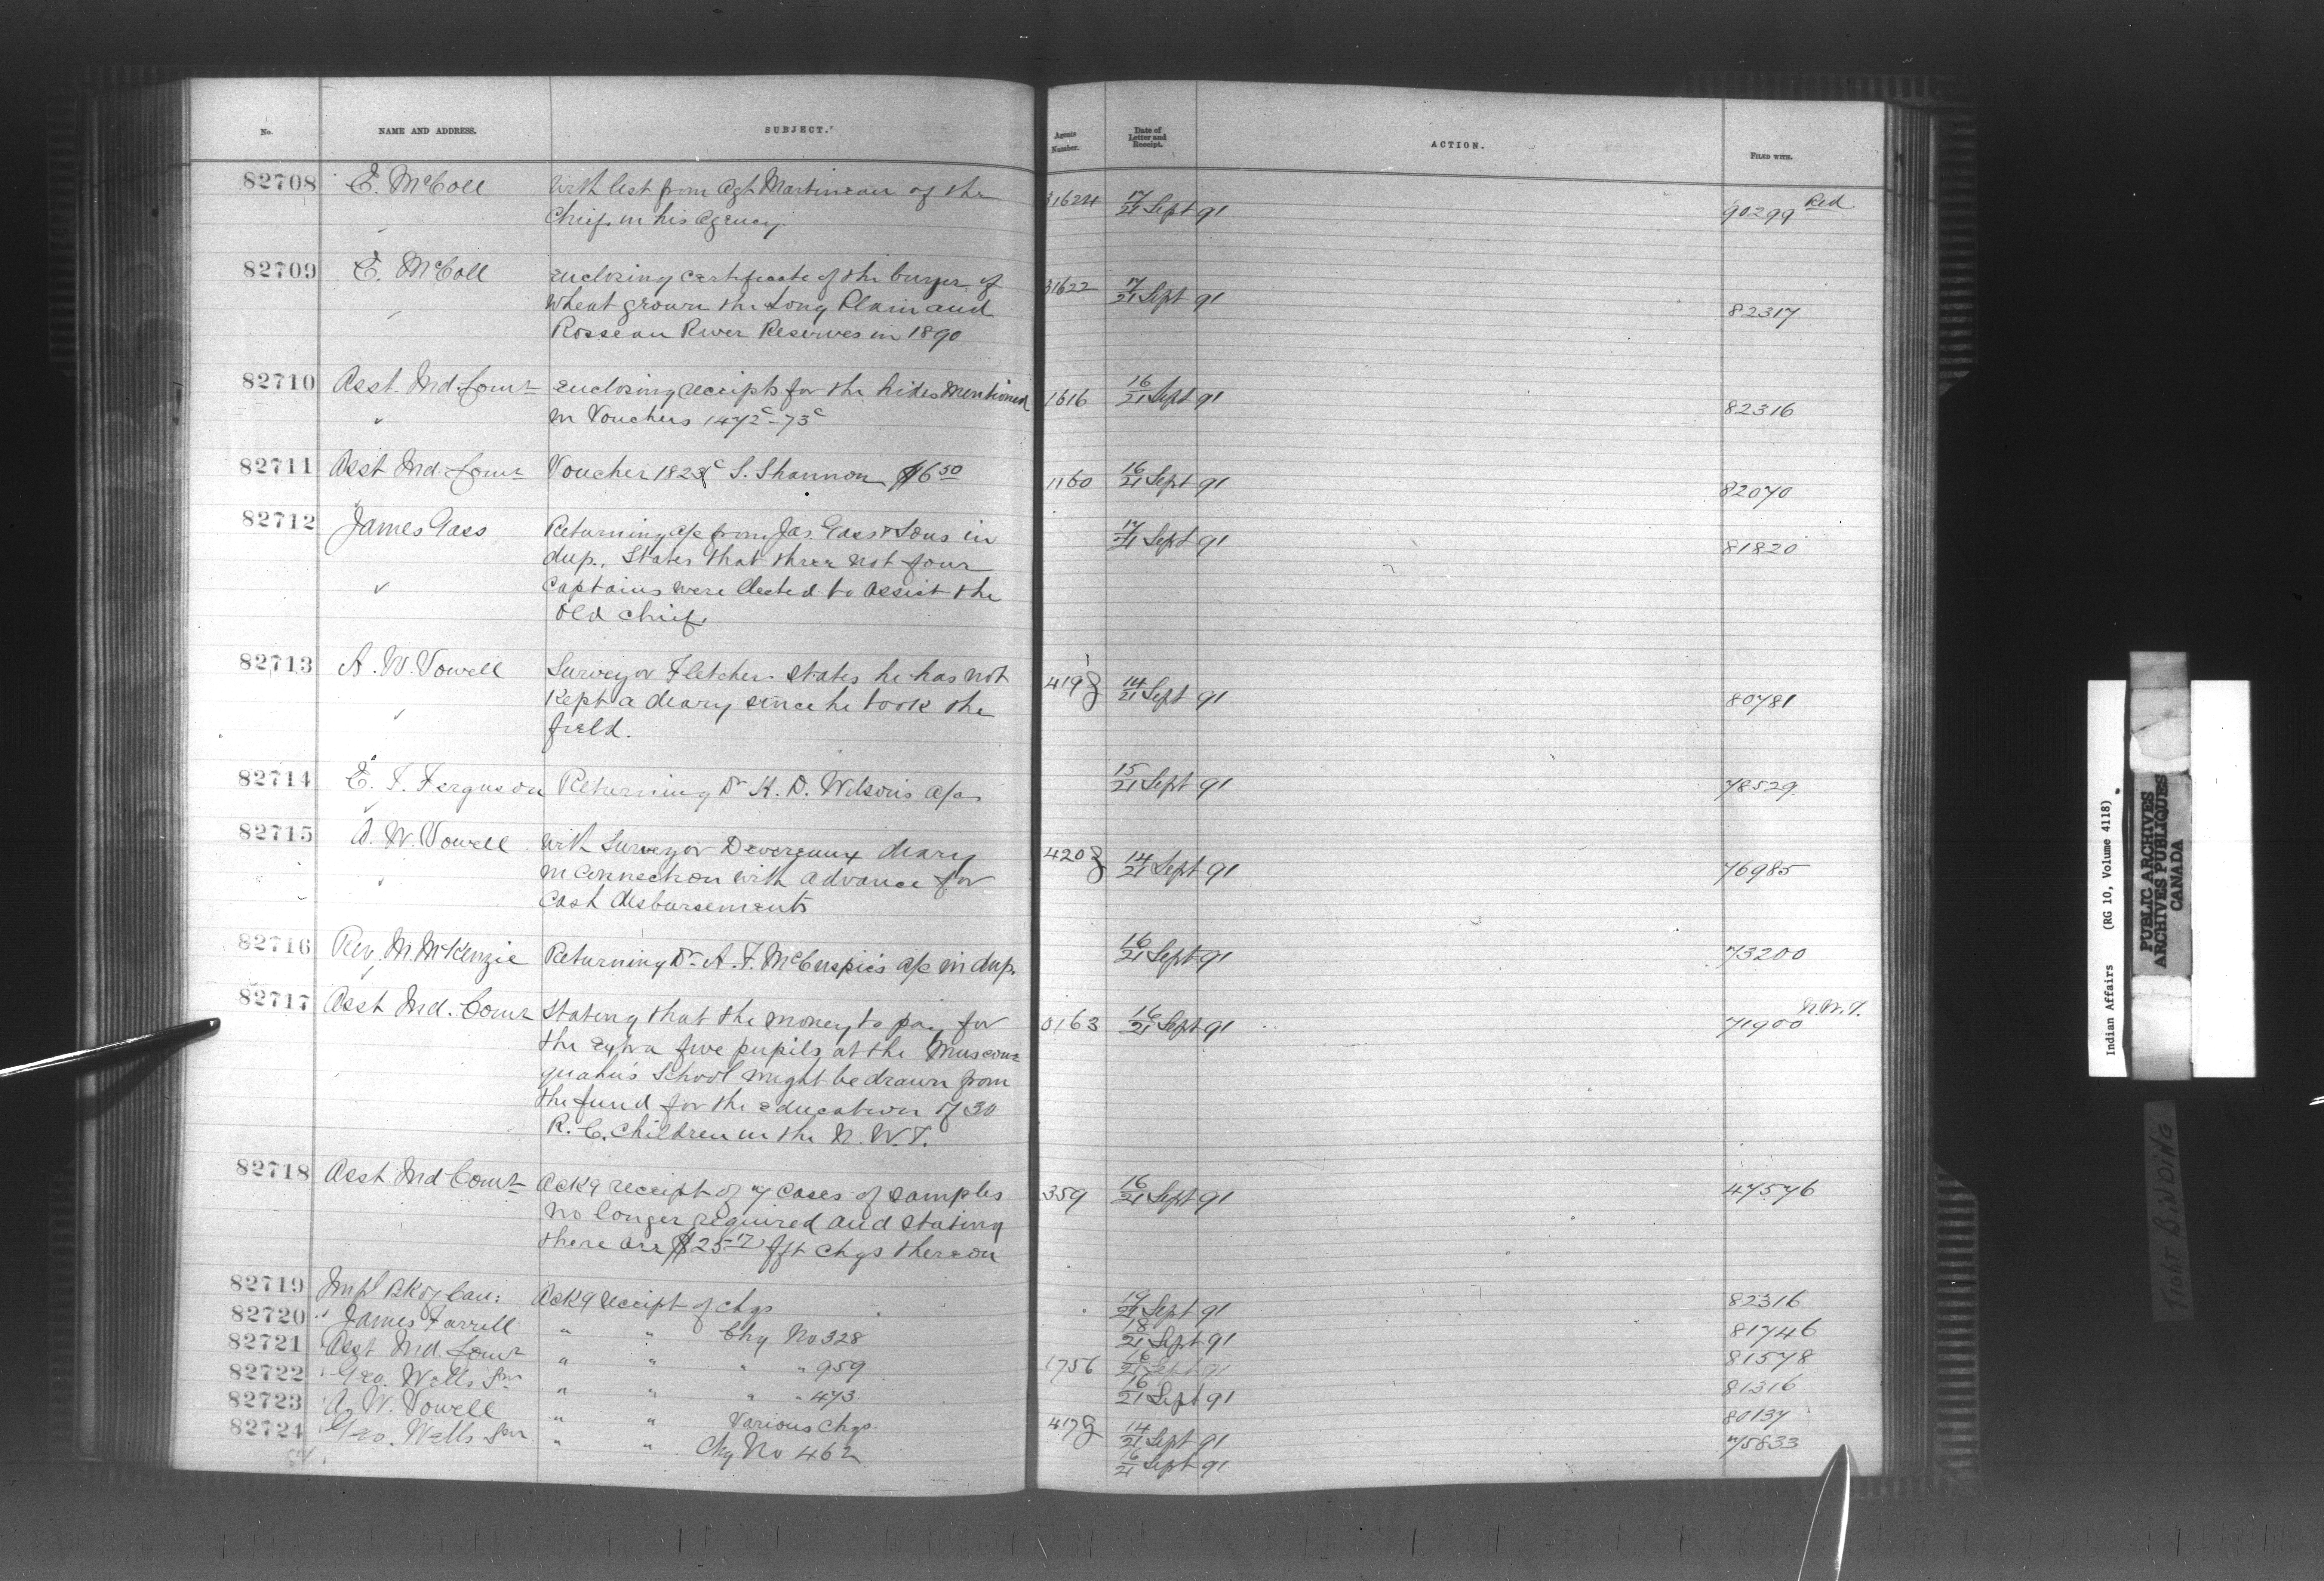 No. NAME AND ADDRESS. SUBJECT. Agents Number. Date of Letter and Receipt. ACTION. FILED WITH.
82708 E. McColl With list from Agt Martineau of the 31624 17/21 Sept 91 90299 Red
Chiefs in his Agency.
82709 E. McColl enclosing certificate of the buyer of 31622 17/21 Sept 91 82317
Wheat grown the Long Plain and
Rosseau River Reserves in 1890
82710 Asst. Ind. Comr enclosing receipts for the hides mentioned 1616 16/21 Sept 91 82316
" in Vouchers 1472c-73c
82711 Asst Ind. Comr Voucher 1823c S. Shannon $6 50 1160 16/21 Sept 91 82070
82712 James Gass Returning a/c from Jas. Gass & Sons in 17/21 Sept 91 81820
dup. States that three not four
Captains were elected to assist the
Old Chief.
82713 A. W. Vowell Surveyor Fletcher states he has not 419 14/21 Sept 91 80781
Kept a diary since he took the
field.
82714 E. T. Ferguson Returning Dr H. D. Wilson's a/cs 15/21 Sept 91 78529
82715 A. W. Vowell With Surveyor Devereaux diary 420 14/21 Sept 91 76985
in connection with advance for
Cash disbursements
82716 Rev. M. McKenzie Returning Dr A. F. McCuspie's a/c in dup. 16/21 Sept 91 73200
82717 Asst Ind. Comr Stating that the money to pay for 0163 16/21 Sept 91 71900 N.W.T.
the extra five pupils at the Muscow-
quahn's School might be drawn from
the fund for the education of 30
R. C. Children in the N. W. T.
82718 Asst Ind Comr Ackg receipt of 7 cases of samples 359 16/21 Sept 91 47576
no longer required and stating
there are $25 17 frt chgs thereon
82719 Impl Bk of Can: Ackg receipt of chqs 19/21 Sept 91 82316
82720 James Farrell " " Chq No 328 18/21 Sept 91 81746
82721 Asst Ind. Comr " " " " 959 1756 16/21 Sept 91 81578
82722 Geo. Wells Snr " " " " 473 16/21 Sept 91 81316
82723 A. W. Vowell " " Various chqs 417 14/21 Sept 91 80137
82724 Geo. Wells Snr " " Chq No 462 16/21 Sept 91 75833
Indian Affairs (RG 10, Volume 4118)
PUBLIC ARCHIVES
ARCHIVES PUBLIQUES
CANADA
TIGHT BINDING